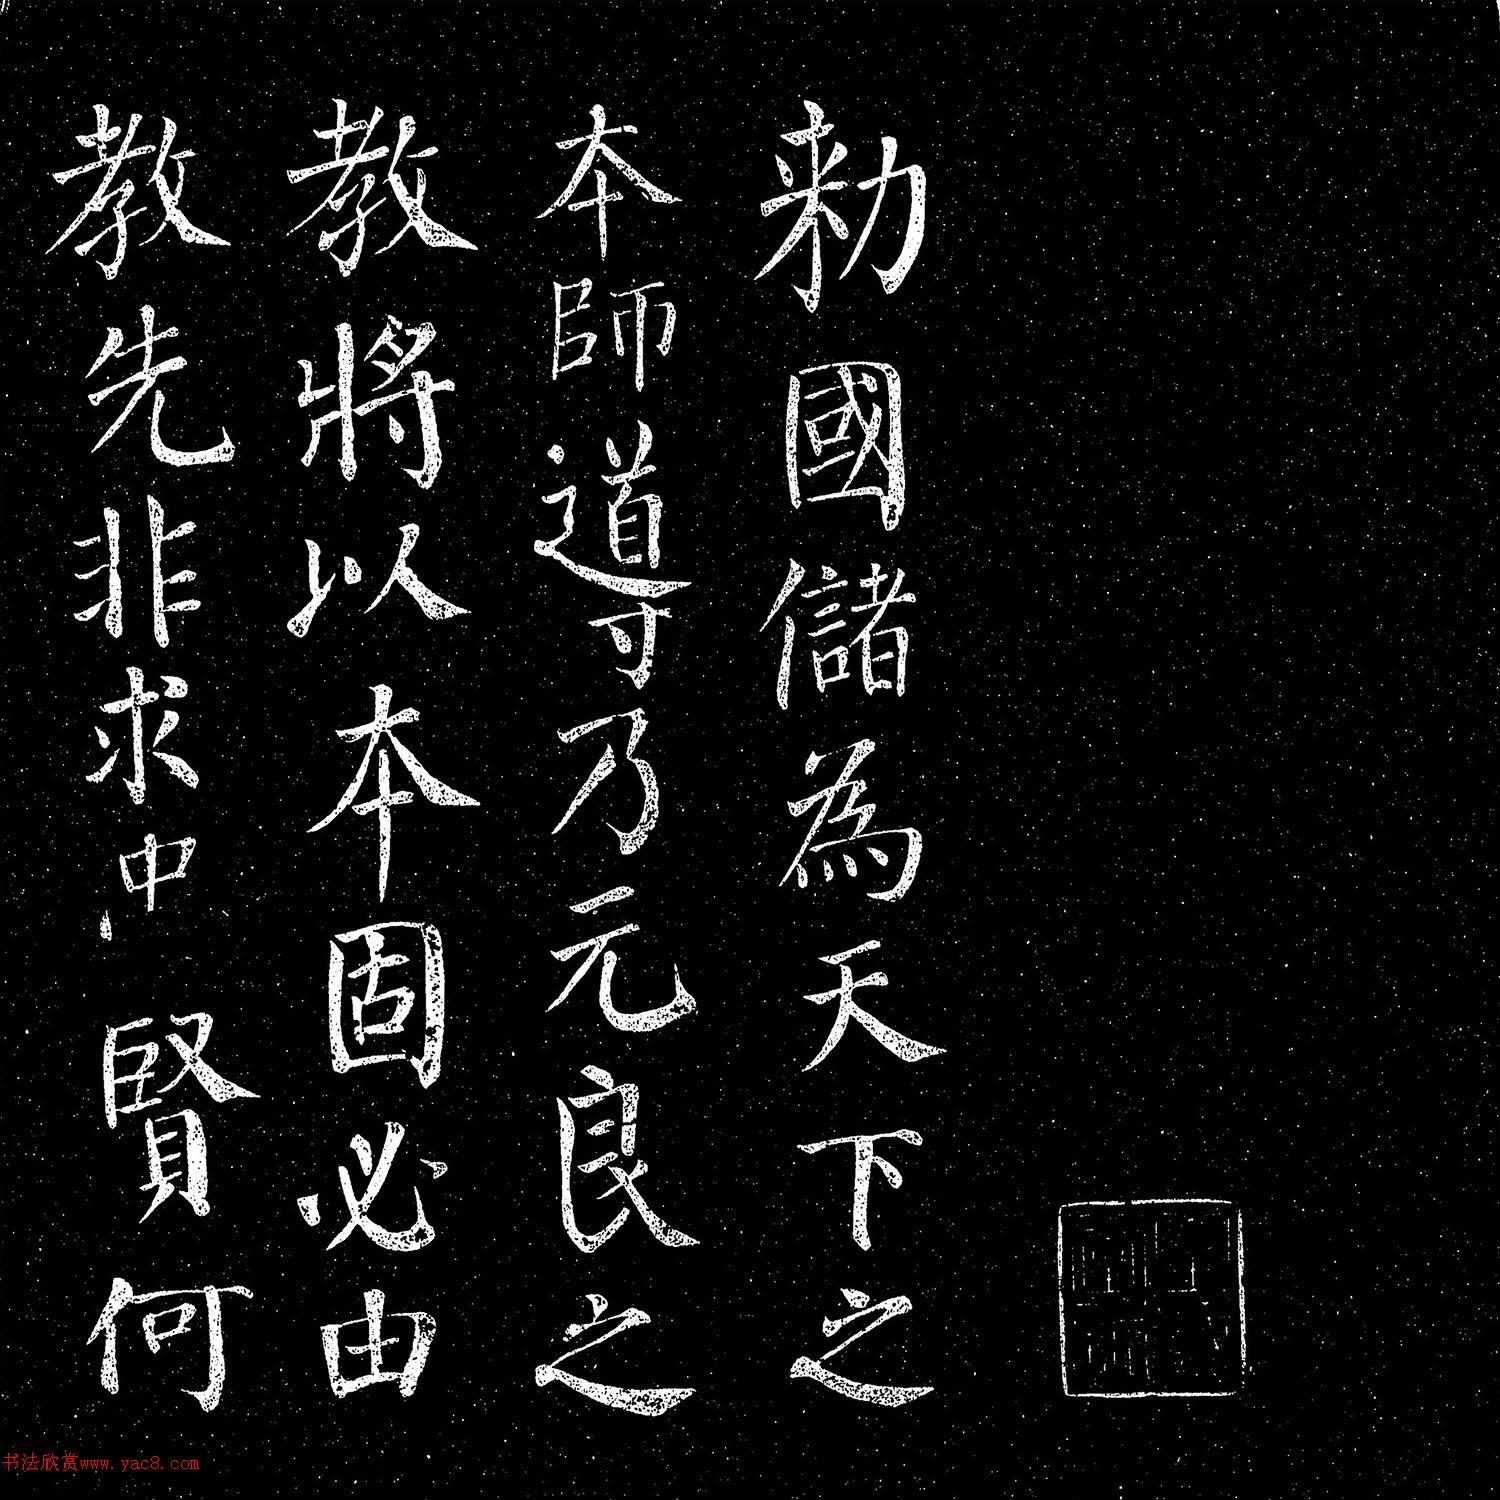 勑國儲為天下之
本師導乃元良之
教將以本固必由
教先非求忠賢何
书法欣赏www.yac8.com